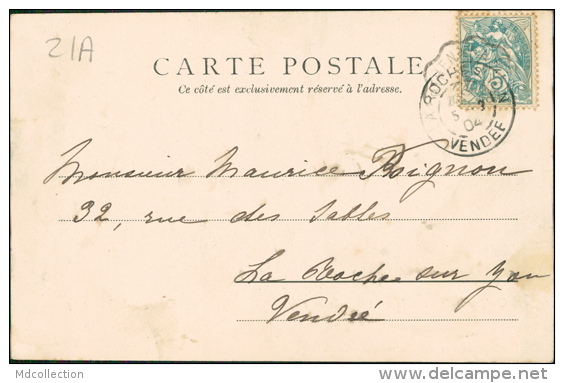 21A
CARTE POSTALE
Ce côté est exclusivement réservé à l'adresse.
LA ROCHE S YON
5
04
VENDEE
Monsieur Maurice Roignon
32, rue des Sables
La Roche sur Yon
Vendée
Mdcollection
www.delcampe.net